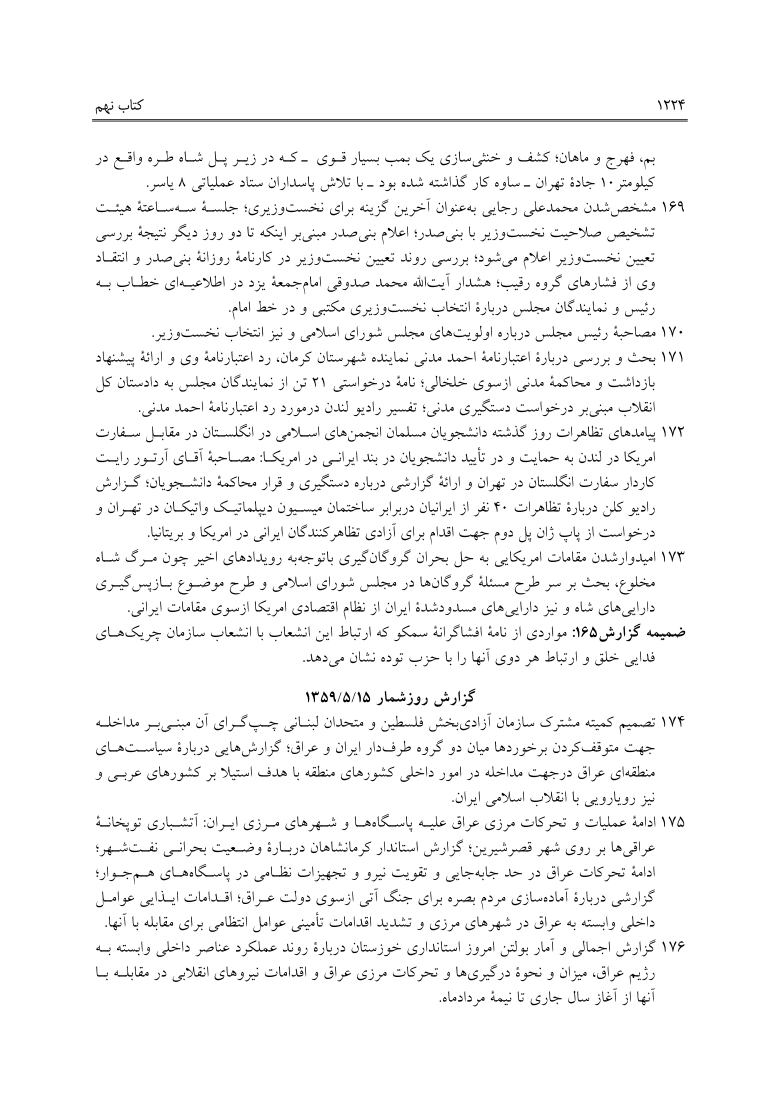 ۱۲۲۴ کتاب نهم
بم، فهرج و ماهان؛ کشف و خنثی‌سازی یک بمب بسیار قوی ـ که در زیر پل شاه طره واقع در
کیلومتر۱۰ جادهٔ تهران ـ ساوه کار گذاشته شده بود ـ با تلاش پاسداران ستاد عملیاتی ۸ یاسر.
۱۶۹ مشخص‌شدن محمدعلی رجایی به‌عنوان آخرین گزینه برای نخست‌وزیری؛ جلسهٔ سه‌ساعتهٔ هیئت
تشخیص صلاحیت نخست‌وزیر با بنی‌صدر؛ اعلام بنی‌صدر مبنی‌بر اینکه تا دو روز دیگر نتیجهٔ بررسی
تعیین نخست‌وزیر اعلام می‌شود؛ بررسی روند تعیین نخست‌وزیر در کارنامهٔ روزانهٔ بنی‌صدر و انتقاد
وی از فشارهای گروه رقیب؛ هشدار آیت‌الله محمد صدوقی امام‌جمعهٔ یزد در اطلاعیه‌ای خطاب به
رئیس و نمایندگان مجلس دربارهٔ انتخاب نخست‌وزیری مکتبی و در خط امام.
۱۷۰ مصاحبهٔ رئیس مجلس درباره اولویت‌های مجلس شورای اسلامی و نیز انتخاب نخست‌وزیر.
۱۷۱ بحث و بررسی دربارهٔ اعتبارنامهٔ احمد مدنی نماینده شهرستان کرمان، رد اعتبارنامهٔ وی و ارائهٔ پیشنهاد
بازداشت و محاکمهٔ مدنی ازسوی خلخالی؛ نامهٔ درخواستی ۲۱ تن از نمایندگان مجلس به دادستان کل
انقلاب مبنی‌بر درخواست دستگیری مدنی؛ تفسیر رادیو لندن درمورد رد اعتبارنامهٔ احمد مدنی.
۱۷۲ پیامدهای تظاهرات روز گذشته دانشجویان مسلمان انجمن‌های اسلامی در انگلستان در مقابل سفارت
امریکا در لندن به حمایت و در تأیید دانشجویان در بند ایرانی در امریکا: مصاحبهٔ آقای آرتور رایت
کاردار سفارت انگلستان در تهران و ارائهٔ گزارشی درباره دستگیری و قرار محاکمهٔ دانشجویان؛ گزارش
رادیو کلن دربارهٔ تظاهرات ۴۰ نفر از ایرانیان دربرابر ساختمان میسیون دیپلماتیک واتیکان در تهران و
درخواست از پاپ ژان پل دوم جهت اقدام برای آزادی تظاهرکنندگان ایرانی در امریکا و بریتانیا.
۱۷۳ امیدوارشدن مقامات امریکایی به حل بحران گروگان‌گیری باتوجه‌به رویدادهای اخیر چون مرگ شاه
مخلوع، بحث بر سر طرح مسئلهٔ گروگان‌ها در مجلس شورای اسلامی و طرح موضوع بازپس‌گیری
دارایی‌های شاه و نیز دارایی‌های مسدودشدهٔ ایران از نظام اقتصادی امریکا ازسوی مقامات ایرانی.
ضمیمه گزارش۱۶۵: مواردی از نامهٔ افشاگرانهٔ سمکو که ارتباط این انشعاب با انشعاب سازمان چریک‌های
فدایی خلق و ارتباط هر دوی آنها را با حزب توده نشان می‌دهد.
گزارش روزشمار ۱۳۵۹/۵/۱۵
۱۷۴ تصمیم کمیته مشترک سازمان آزادی‌بخش فلسطین و متحدان لبنانی چپ‌گرای آن مبنی‌بر مداخله
جهت متوقف‌کردن برخوردها میان دو گروه طرف‌دار ایران و عراق؛ گزارش‌هایی دربارهٔ سیاست‌های
منطقه‌ای عراق درجهت مداخله در امور داخلی کشورهای منطقه با هدف استیلا بر کشورهای عربی و
نیز رویارویی با انقلاب اسلامی ایران.
۱۷۵ ادامهٔ عملیات و تحرکات مرزی عراق علیه پاسگاه‌ها و شهرهای مرزی ایران: آتشباری توپخانهٔ
عراقی‌ها بر روی شهر قصرشیرین؛ گزارش استاندار کرمانشاهان دربارهٔ وضعیت بحرانی نفت‌شهر؛
ادامهٔ تحرکات عراق در حد جابه‌جایی و تقویت نیرو و تجهیزات نظامی در پاسگاه‌های هم‌جوار؛
گزارشی دربارهٔ آماده‌سازی مردم بصره برای جنگ آتی ازسوی دولت عراق؛ اقدامات ایذایی عوامل
داخلی وابسته به عراق در شهرهای مرزی و تشدید اقدامات تأمینی عوامل انتظامی برای مقابله با آنها.
۱۷۶ گزارش اجمالی و آمار بولتن امروز استانداری خوزستان دربارهٔ روند عملکرد عناصر داخلی وابسته به
رژیم عراق، میزان و نحوهٔ درگیری‌ها و تحرکات مرزی عراق و اقدامات نیروهای انقلابی در مقابله با
آنها از آغاز سال جاری تا نیمهٔ مردادماه.